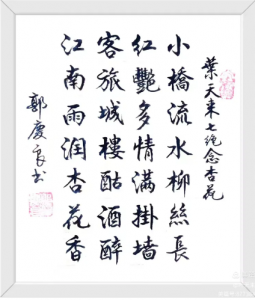 葉天来七绝念杏花
小橋流水柳絲長
紅艷多情滿掛墙
客旅城樓酤酒醉
江南雨润杏花香
郭慶良书